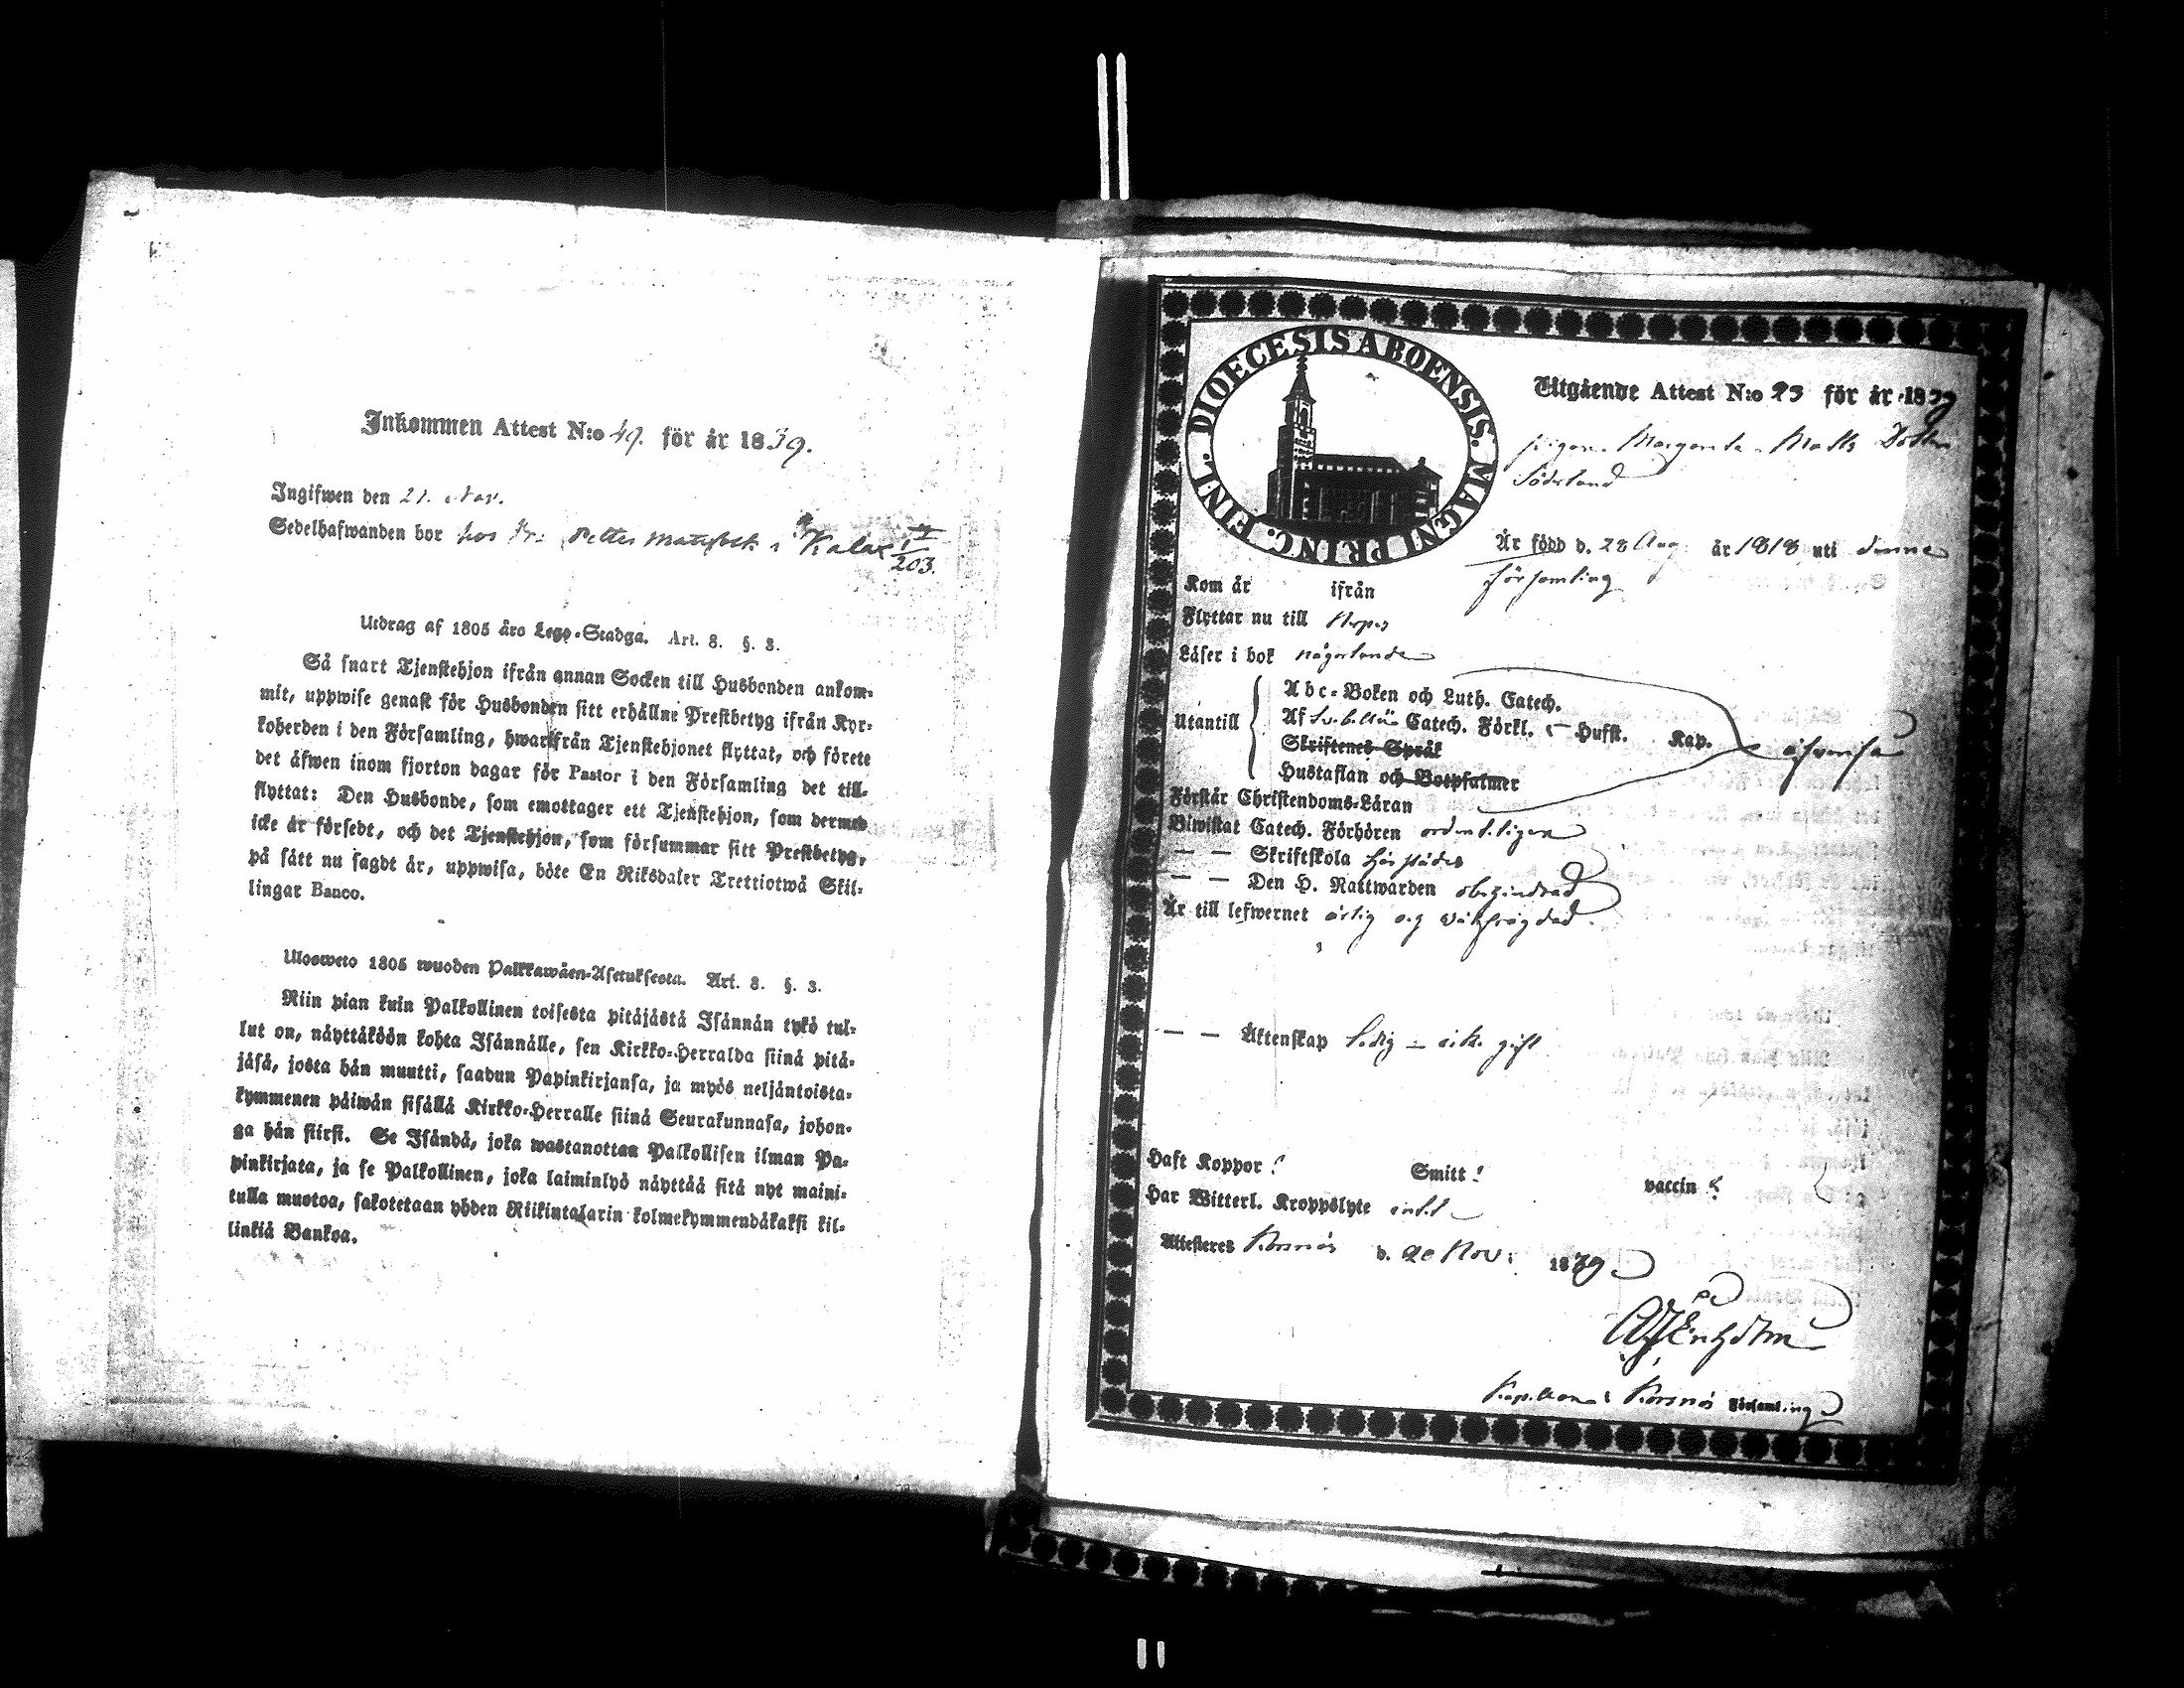 Inkommen Attest N:o 49. för år 1839.
Ingifwen den 21. Nov.
Sedelhafwanden bor hos Petter Mattss i Kalax
203.
Utdrag af 1805 års Lego-Stadga. Art. 8. §. 3.
Så snart Tjenstehjon ifrån annan Socken till Husbonden ankom-
mit, uppwise genast för Husbonden sitt erhållne Prestbetyg ifrån Kyr-
koherden i den Församling, hwarifrån Tjenstehjonet flyttat, och förete
det äfwen inom fjorton dagar för Pastor i den Församling det till-
flyttat: Den Husbonde, som emottager ett Tjenstehjon, som dermed
icke är försedt, och det Tjenstehjon, som försummar sitt Prestbetyg,
på sätt nu sagdt är, uppwisa, böte En Riksdaler Trettiotwå Skil-
lingar Banco.
Ulosweto 1805 wuoden Palkkawäen-Asetuksesta. Art. 8. §. 3.
Niin pian kuin Palkollinen toisesta pitäjästä Isännän tykö tul-
lut on, näyttäköön kohta Isännälle, sen Kirkko-Herralda siinä pitä-
jäsä, josta hän muutti, saadun Papinkirjansa, ja myös neljäntoista-
kymmenen päiwän sisällä Kirkko-Herralle siinä Seurakunnasa, johon-
ga hän siirsi. Se Isändä, joka wastanottaa Palkollisen ilman Pa-
pinkirjata, ja se Palkollinen, joka laiminlyö näyttää sitä nyt maini-
tulla muotoa, sakotetaan yhden Riikintalarin kolmekymmendäkaksi kil-
linkiä Bankoa.
DIOECESIS ABOENSIS. MAGNI PRINC. FINL.
Utgående Attest N:o 23 för år 1839
pigan Margareta Matts Dotter
Söderland
Är född d. 28 Aug. år 1818 uti denne
församling
Kom år ifrån
Flyttar nu till
Läser i bok någorlunda
Utantill
Abc-Boken och Luth. Catech.
Af Catech. Förkl. Husst. Kap.
Skriftenes Språk
Hustaflan och Botpsalmer
Förstår Christendoms-Läran
Biwistat Catech. Förhören ordentligen
— — Skriftskola härstädes
— — Den H. Nattwarden obehindrad
Är till lefwernet ärlig och wälfrägdad
— — Äktenskap ledig gift
Haft Koppor Smitt vaccin
Har Witterl. Kroppslyte intet
Attesteres Korsnäs d. 20 Nov. 1839
Kapellan i Korsnäs Församling